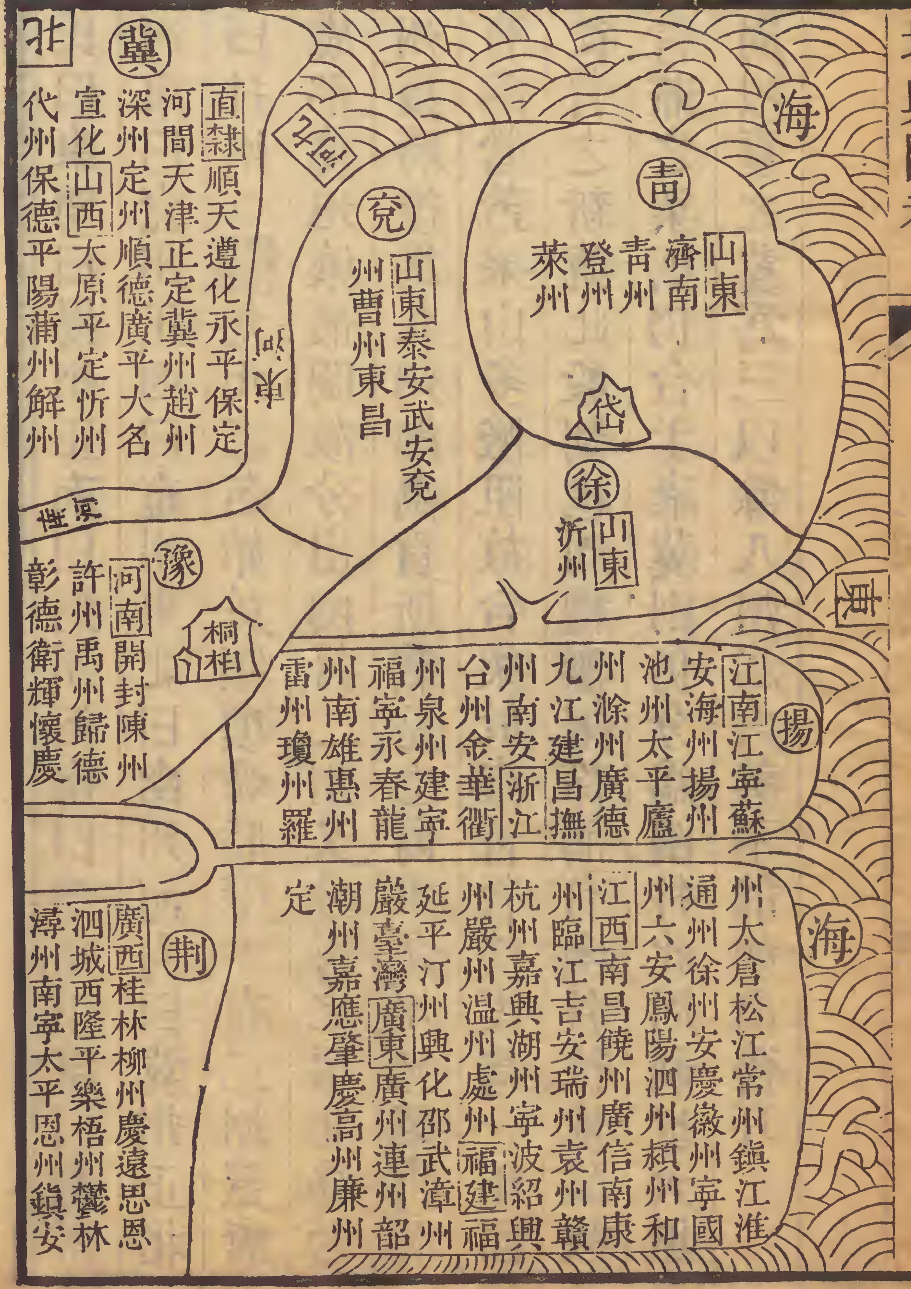 海
青
山東
濟南
青州
登州
萊州
岱
徐
山東
沂州
東
兗
山東泰安武安兗
州曹州東昌
九河
東河
南河
北
冀
直隸順天遵化永平保定
河間天津正定冀州趙州
深州定州順德廣平大名
宣化山西太原平定忻州
代州保德平陽蒲州解州
豫
河南開封陳州
許州禹州歸德
彰德衛輝懷慶
桐柏
揚
江南江寧蘇
州太倉松江常州鎮江淮
安海州揚州
通州徐州安慶徽州寧國
池州太平廬
州六安鳳陽泗州潁州和
州滁州廣德
江西南昌饒州廣信南康
九江建昌撫
州臨江吉安瑞州袁州贛
州南安浙江
杭州嘉興湖州寧波紹興
台州金華衢
州嚴州温州處州福建福
州泉州建寧
延平汀州興化邵武漳州
福寧永春龍
巖臺灣廣東廣州連州韶
州南雄惠州
潮州嘉應肇慶高州廉州
雷州瓊州羅
定
海
荆
廣西桂林柳州慶遠思恩
泗城西隆平樂梧州鬱林
潯州南寧太平恩州鎮安